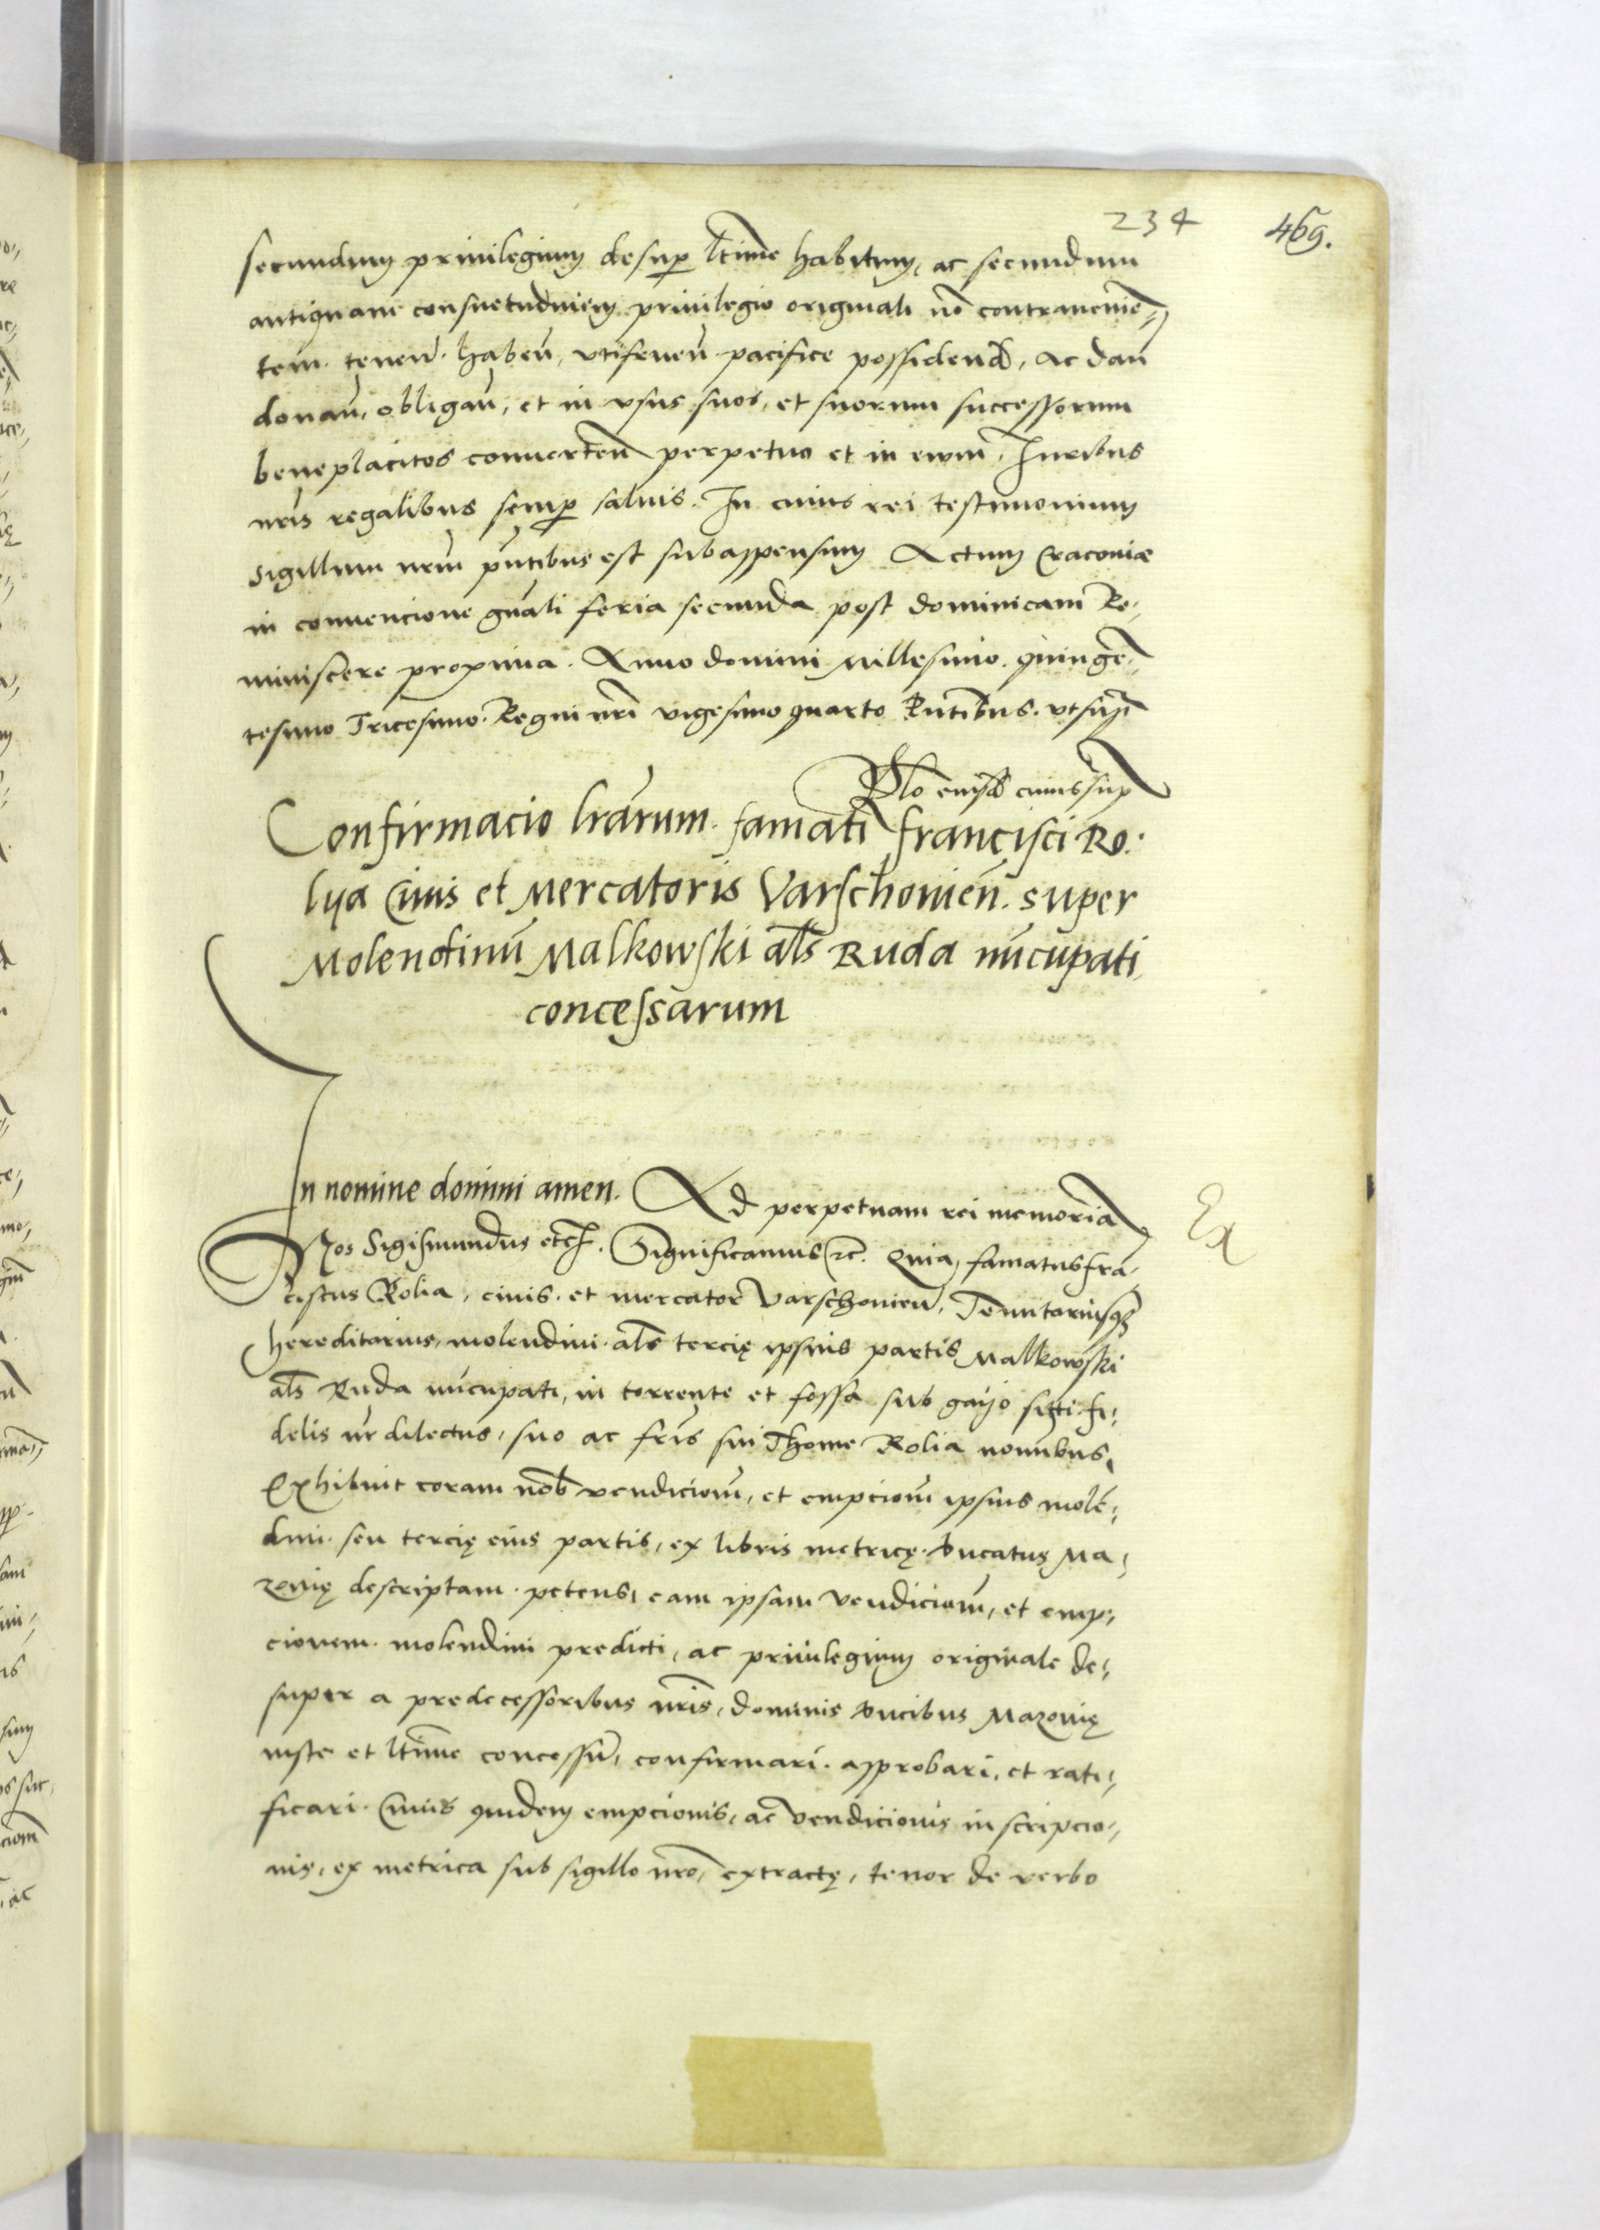 234 469.
secundum priuilegium desup ltime habitum, ac secundum
antiquam consuetudinem priuilegio originali no contrauenie„
tem. tenen. haben, vtifruen. pacifice possidend, ac dan
donan, obligan, et in vsus suos, et suorum successorum
beneplacitos conuerten perpetuo et in euum, Iuribus
nris regalibus semp saluis. In cuius rei testimonium
Sigillum nrm pntibus est subappensum Actum Cracouiæ
in conuencione gnali feria secunda post dominicam Re„
miniscere proxima. Anno domini Millesimo. quinge„
tesimo Tricesimo. Regni nri vigesimo quarto Pntibus. vt sup
Rlo eiusd cuius sup
Confirmacio lrarum. famati francisci Ro.
lya Ciuis et Mercatoris Varschouien. super
Molendinu Malkowski als Ruda nucupati
concessarum
In nomine domini amen. Ad perpetuam rei memoria
Nos Sigismundus etc. Significamus etc. Quia, famatus fra„
ciscus Rolia, ciuis. et mercator Varschouien, Tenutariusq
hereditarius, molendini. als tercię ipsius partis Malkowski
als Ruda nucupati, in torrente et fossa sub gayo siti. fi„
delis nr dilectus, suo ac fris sui Thome Rolia nominibus,
Exhibuit coram nob vendiciom, et empciom ipsius mole„
dini. seu tercię eius partis, ex libris metricę. Ducatus Ma„
zouię descriptam. petens, eam ipsam vendiciom, et emp„
cionem. molendini predicti, ac priuilegium originale de„
super a predecessoribus nris, dominis Ducibus Mazouię
iuste et ltime concessu, confirmari. approbari, et rati„
ficari. Cuius quidem empcionis, ac vendicionis inscripcio„
nis, ex metrica sub sigillo nro, extractę, tenor de verbo
Ex